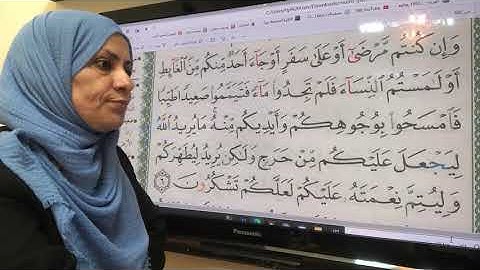 وَإِن كُنتُم مَّرْضَىٰٓ أَوْ عَلَىٰ سَفَرٍ أَوْ جَآءَ أَحَدٌ مِّنكُم مِّنَ ٱلْغَآئِطِ
أَوْ لَٰمَسْتُمُ ٱلنِّسَآءَ فَلَمْ تَجِدُوا۟ مَآءً فَتَيَمَّمُوا۟ صَعِيدًا طَيِّبًا
فَٱمْسَحُوا۟ بِوُجُوهِكُمْ وَأَيْدِيكُم مِّنْهُ مَا يُرِيدُ ٱللَّهُ
لِيَجْعَلَ عَلَيْكُم مِّنْ حَرَجٍ وَلَٰكِن يُرِيدُ لِيُطَهِّرَكُمْ
وَلِيُتِمَّ نِعْمَتَهُۥ عَلَيْكُمْ لَعَلَّكُمْ تَشْكُرُونَ ٦
Panasonic